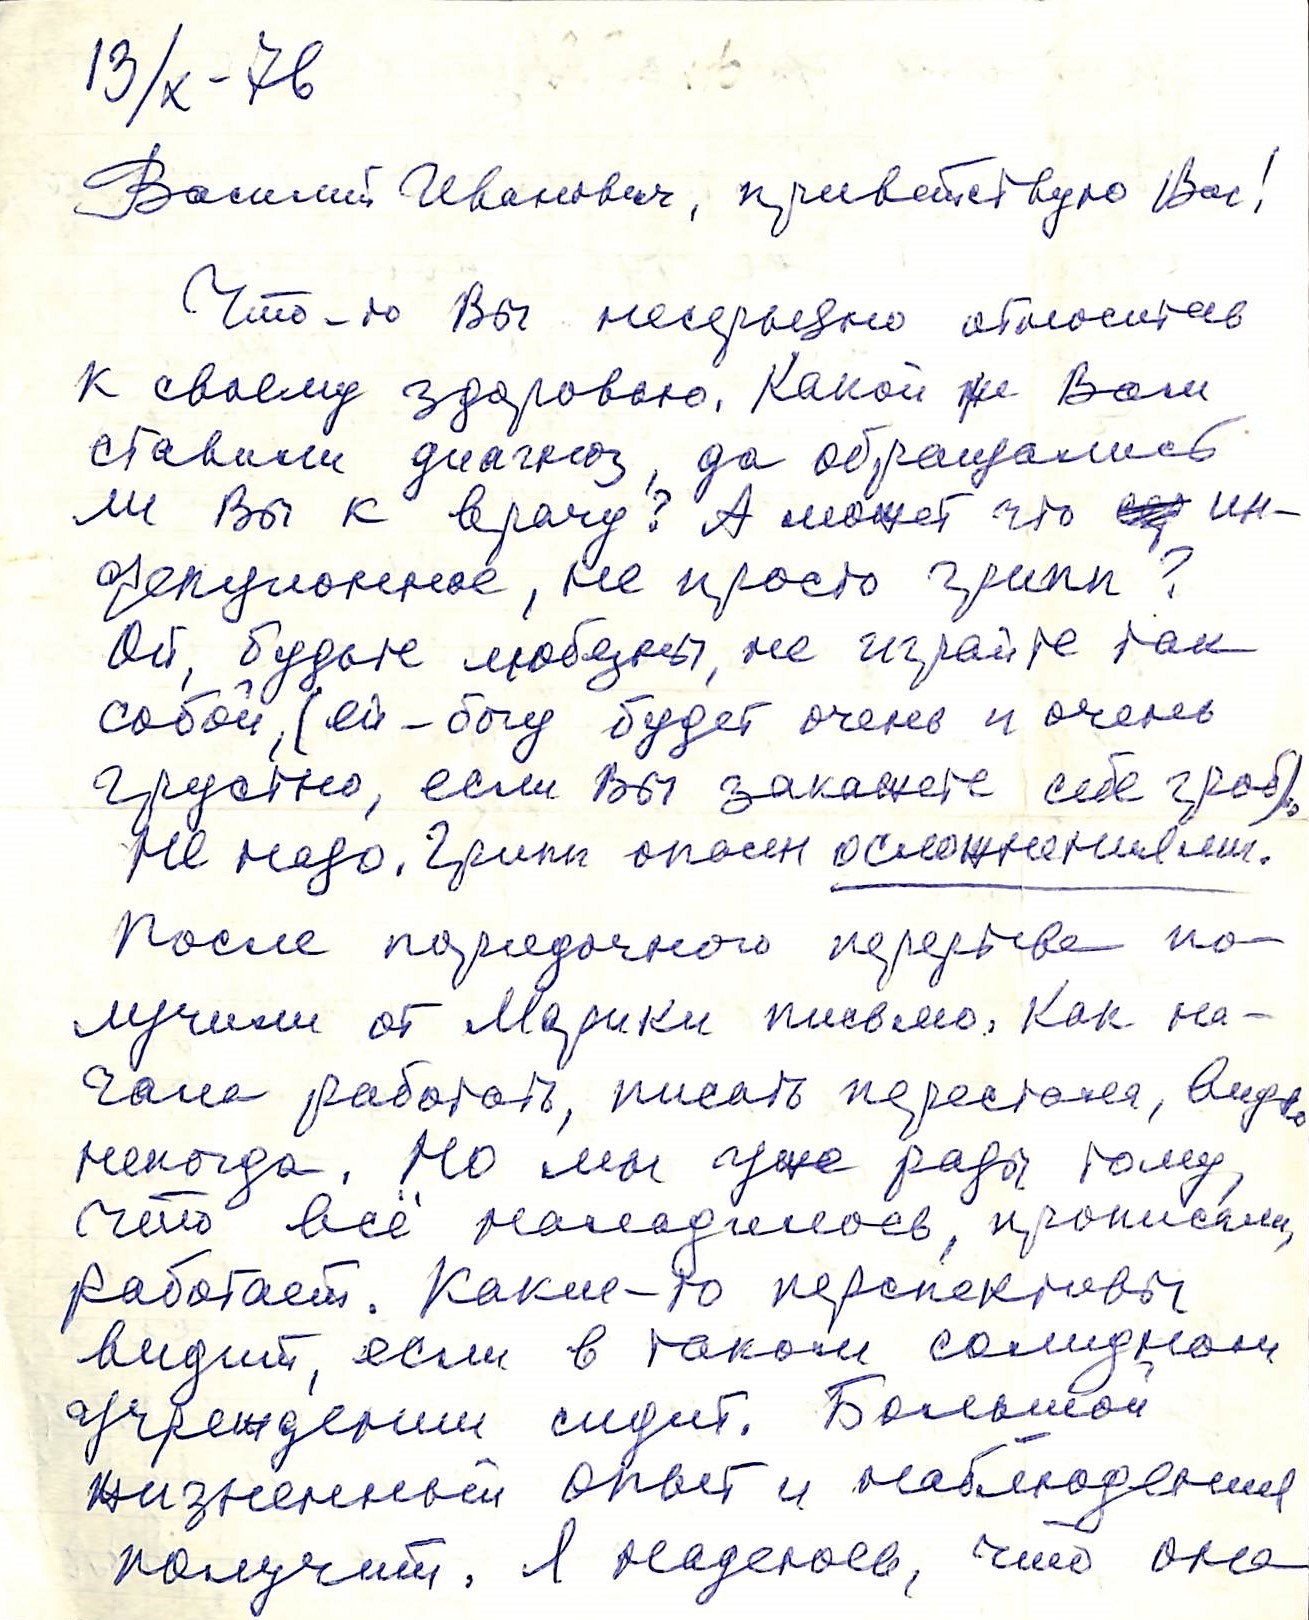 13/X-76
Василий Иванович, приветствую Вас!
Что-то Вы несерьезно относитесь
к своему здоровью. Какой же Вам
ставили диагноз, да обращались
ли Вы к врачу? А может что ин-
фекционное, не просто грипп?
Ой, будьте любезны, не играйте так
собой, (ей-богу будет очень и очень
грустно, если Вы закажете себе гроб).
Не надо. Грипп опасен осложнениями.
После порядочного перерыва по-
лучили от Марики письмо. Как на-
чала работать, писать перестала, видно
некогда. Но мы уже рады тому,
что всё наладилось, прописали,
работает. Какие-то перспективы
видит, если в таком солидном
учреждении сидит. Большой
жизненный опыт и наблюдения
получит. Я надеюсь, что она